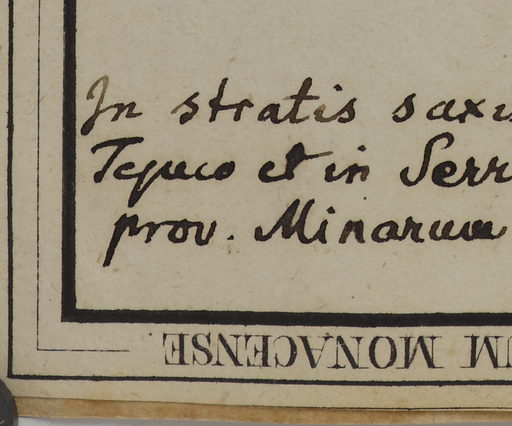 In stratis saxis
Tejuco et in Serr
prov. Minarum
UM MONACENSE